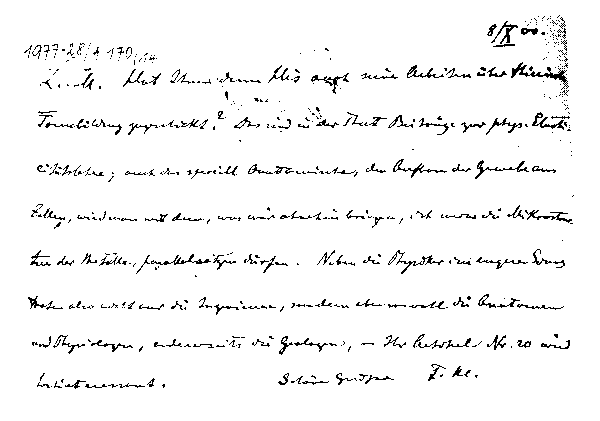 8/X 00.
1977-28/A 170/14
L. M. Hat Ihnen denn His auch seine Arbeiten über
Formbildung geschickt? Das sind in der That Beiträge zur phys. Elasti-
citätslehre; auch das speciell Anatomische, der Aufbau der Gewebe aus
Zellen, wird man mit dem, was wir ohnehin bringen, ich meine die Mikrostruk-
tur der Metalle, parallelsetzen dürfen. Neben die Physiker im engeren Sinne
treten also nicht nur die Ingenieure, sondern ebensowohl die Anatomen
und Physiologen, andererseits die Geologen, — Ihr Artikel Nr. 20 wird
hochinteressant. Schöne Grüsse F. Kl.